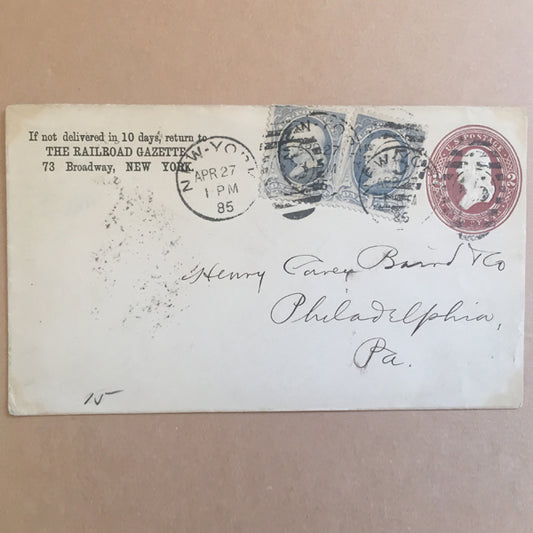 If not delivered in 10 days, return to
THE RAILROAD GAZETTE,
73 Broadway, NEW YORK.
NEW-YORK
APR 27
1 PM
85
NEW-YO
85
U.S. POSTAGE
2
Henry Carey Baird & Co
Philadelphia,
Pa.
15